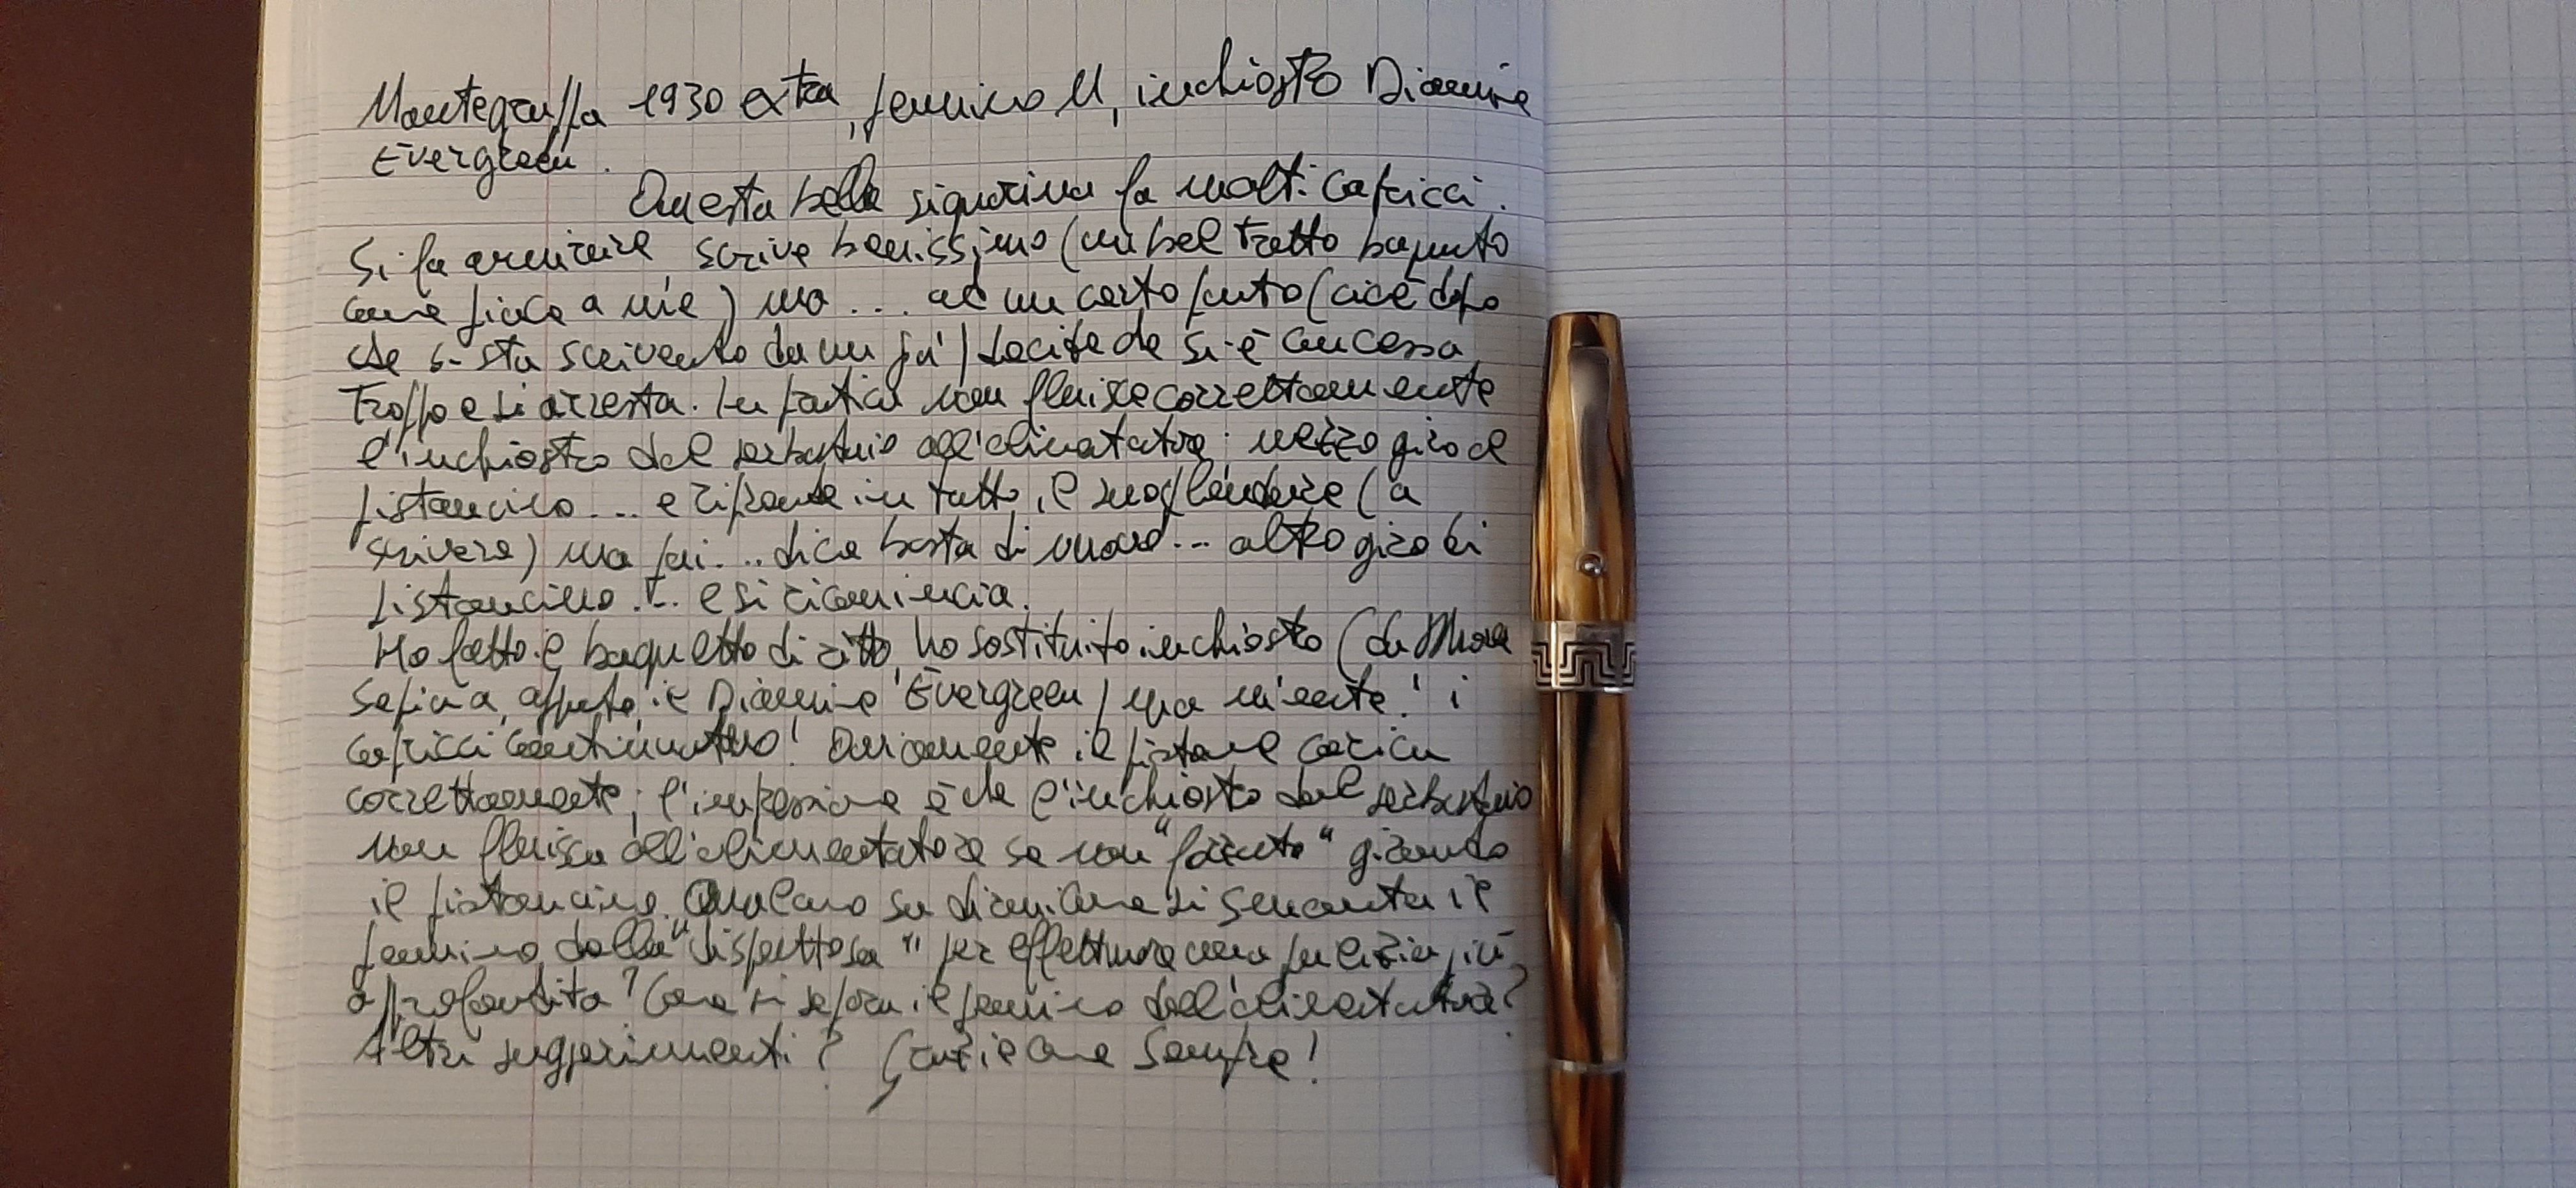 Montegrappa 1930 extra, pennino M, inchiostro Diamine
Evergreen.
Questa bella signorina fa molti capricci.
Si fa ammirare, scrive benissimo (un bel tratto bagnato
come piace a me) ma... ad un certo punto (cioè dopo
che si sta scrivendo da un po') decide che si è concessa
troppo e si arresta. In pratica non fluisce correttamente
l'inchiostro dal serbatoio all'alimentatore: mezzo giro al
pistoncino... e riprende in tutto il suo splendore (a
scrivere) ma poi... dice basta di nuovo... altro giro di
pistoncino... e si ricomincia.
Ho fatto il bagnetto di rito, ho sostituito inchiostro (da
a, appunto, il Diamine Evergreen) ma niente! i
capricci continuano! Ovviamente il pistone carica
correttamente; l'impressione è che l'inchiostro dal serbatoio
non fluisca all'alimentatore se non "forzato" girando
il pistoncino. Qualcuno sa dirmi come si smonta il
pennino dalla "dispettosa" per effettuare una pulizia più
approfondita? Come si separa il pennino dall'alimentatore?
Altri suggerimenti? Grazie come sempre!